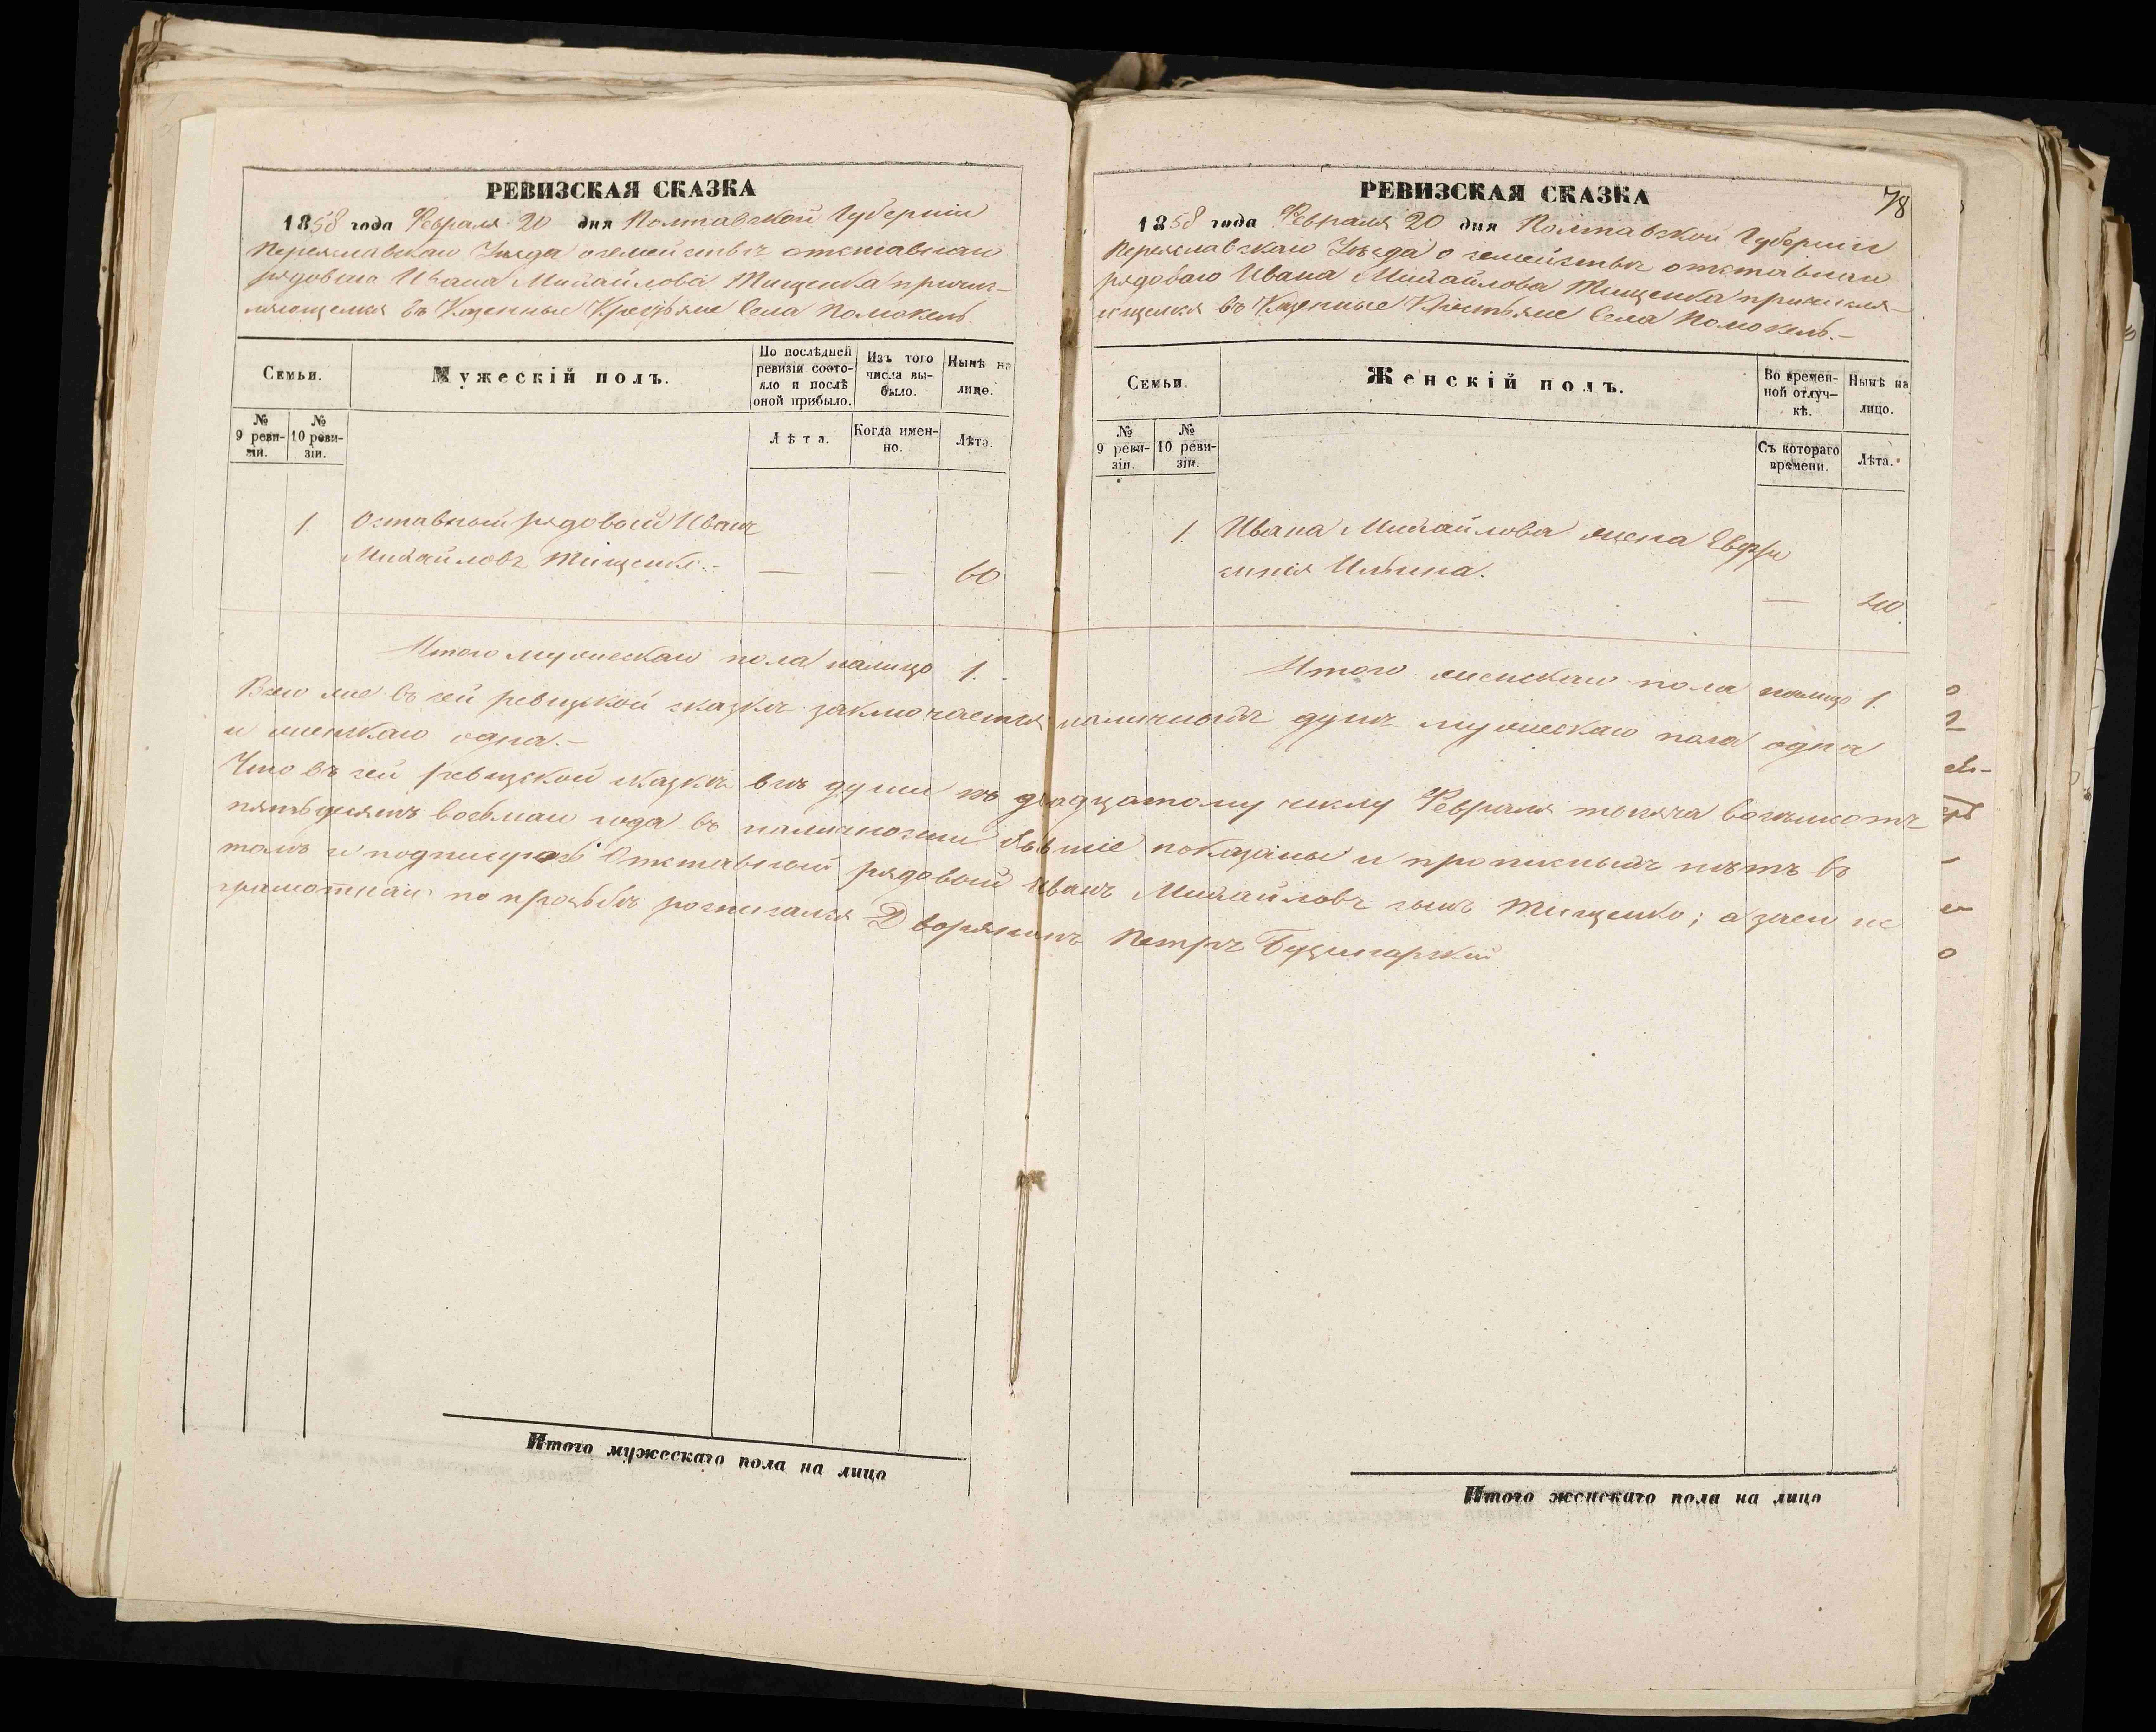 РЕВИЗСКАЯ СКАЗКА
1858 года Февраля 20 дня Полтавской Губерніи
Переяславскаго Уезда о семействѣ отставнаго
рядоваго Ивана Михайлова Тищенка причис-
ляющемся въ Казенные Крестьяне Села Помоклъ.
Семьи.
Мужескій полъ.
По послѣдней ревизіи состояло и послѣ оной прибыло.
Изъ того числа выбыло.
Нынѣ на лицо.
№ 9 реви-зіи.
№ 10 реви-зіи.
Лѣта.
Когда имен-но.
Лѣта.
1 Оставный рядовый Иванъ
Михайловъ Тищенко.- — — 60
Итого мужескаго пола налицо 1.
РЕВИЗСКАЯ СКАЗКА
78
1858 года Февраля 20 дня Полтавской Губерніи
Переяславскаго Уѣзда о семействѣ отставнаго
рядоваго Ивана Михайлова Тищенка причисля-
ющемся въ Казенные Крестьяне Села Помоклъ.-
Семьи.
Женскій полъ.
Во времен-ной отлуч-кѣ.
Нынѣ на лицо.
№ 9 реви-зіи.
№ 10 реви-зіи.
Съ котораго времени.
Лѣта.
1. Ивана Михайлова жена Евфро
синія Ильина. —
Итого женскаго пола налицо 1.
Всего же въ сей ревизской сказкѣ заключается наличныхъ душъ мужескаго пола одна
и женскаго одна.-
Что въ сей ревизской сказкѣ всѣ души къ двадцатому числу Февраля тысяча восемсотъ
пятьдесятъ восьмаго года въ наличности бывшіе показаны и прописныхъ нѣтъ въ
томъ и подписуюсь Отставный рядовый Иванъ Михайловъ сынъ Тищенко; а за его не
грамотнаго по прозьбѣ росписался Дворянинъ Петръ
Итого мужескаго пола на лицо
Итого женскаго пола на лицо